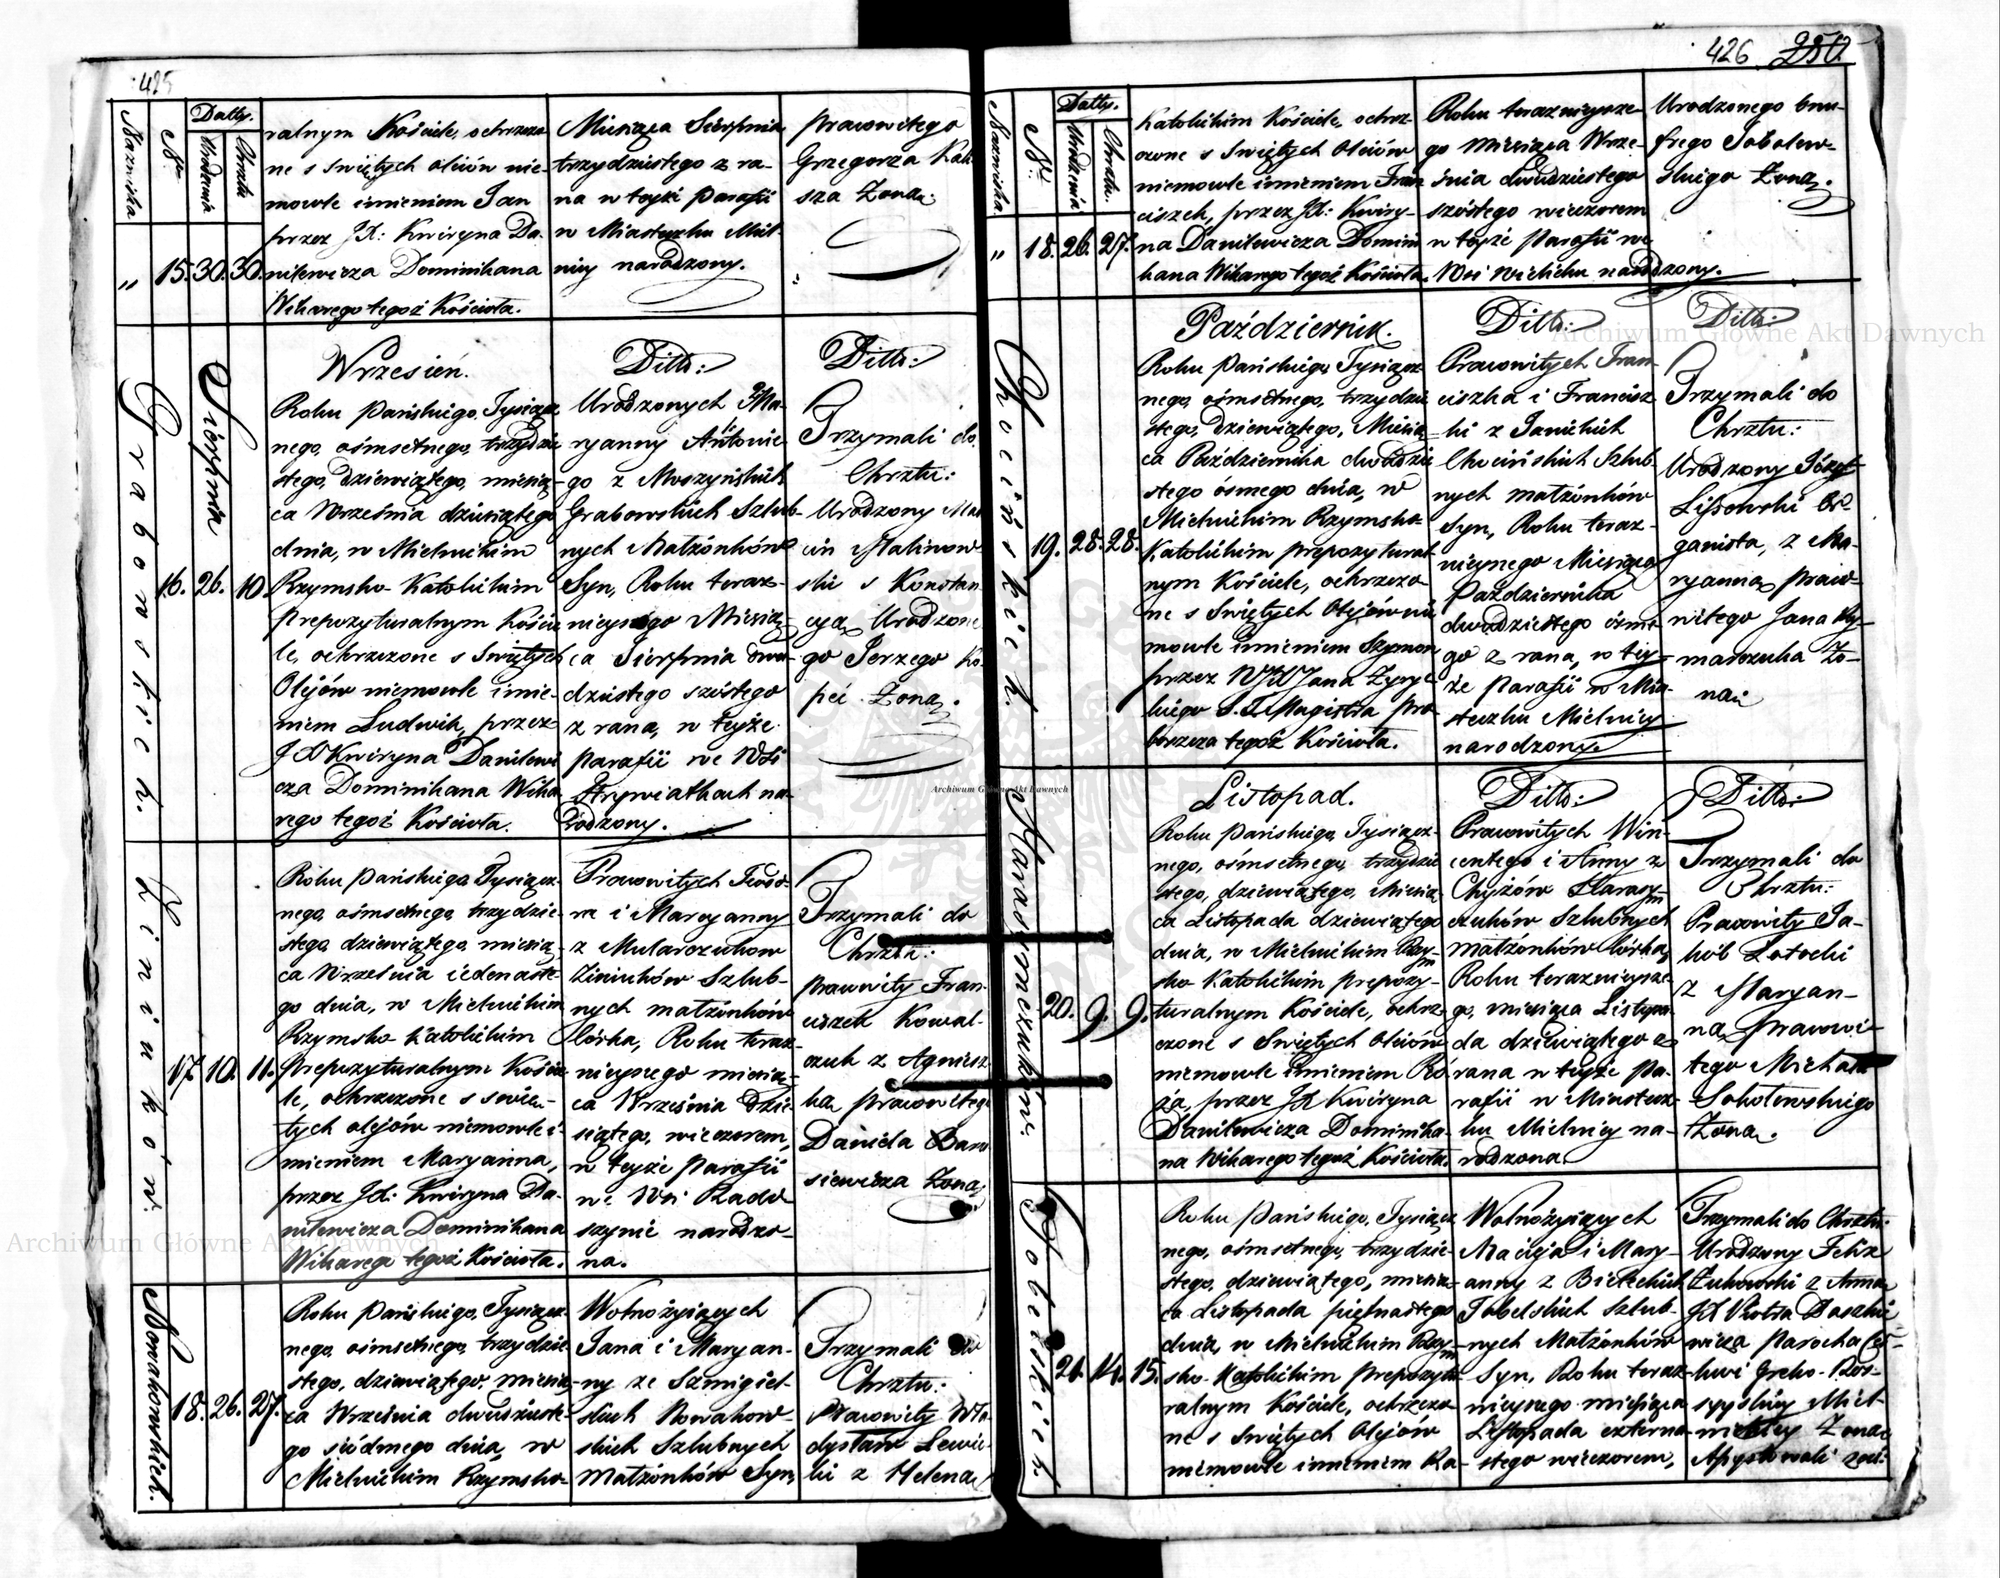 425
Datty.
Nazwiska
Nr
Urodzenia
Chrztu
ralnym Kościele, ochrzczo
ne s świętych oleiów nie-
mowle imieniem Jan
przez JX: Kwiryna Da-
nilewicza Dominikana
Wikarego tegoż Kościoła.
Miesiąca Sierpnia
trzydziestego z ra-
na w teyże parafii
w Miasteczku Miel
nicy narodzony.
prawowitego
Grzegorza Kali
sza Żona.
" 15. 30. 30.
Grabowskich.
Sierpnia
16. 26. 10.
Wrzesień.
Roku Pańskiego, Tysiącz
nego, ośmsetnego, trzydzie
stego, Dziewiątego, miesią-
ca Września dziesiątego
dnia, w Mielnickim
Rzymsko-Katolickim
Prepozyturalnym Koście
le, ochrzczone s świętych
Olejów niemowle imie-
niem Ludwik, przez
JX Kwiryna Danilewi
cza Dominikana Wika-
rego tegoż Kościoła.
Ditto:
Urodzonych Ma-
ryanny Antonie-
go z Moszyńskich
Grabowskich Szlub-
nych Małżonków
Syn, Roku teraz-
nieyszego Miesią-
ca Sierpnia dwu-
dziestego szóstego
z rana, w teyże
parafii we Wsi
Strywiatkach na-
rodzony.
Ditto:
Trzymali do
Chrztu:
Urodzony Mar
cin Malinow
ski s Konstan
cyą Urodzone
go Jerzego Ko-
peć Żoną.
Ziniuków.
17. 10. 11.
Roku Pańskiego Tysiącz-
nego, ośmsetnego, trzydzie-
stego dziewiątego miesią-
ca Września iedenaste-
go dnia, w Mielnickim
Rzymsko Katolickim
Prepozyturalnym Koście
le, ochrzczone s świę-
tych olejów niemowle i-
mieniem Maryanna,
przez JX: Kwiryna Da-
nilewicza Dominikana
Wikarego tegoż Kościoła.
Prawowitych Teodo-
ra i Maryanny
z Mularczuków
Ziniuków Szlub-
nych małżonków
Córka, Roku teraz-
nieyszego miesią-
ca Września dzie
siątego, wieczorem,
w teyże parafii
we Wsi Rado-
szynie narodzo-
na.
Trzymali do
Chrztu:
prawowity Fran-
ciszek Kowal-
czuk z Agniesz-
ką prawowitego
Daniela Baro
siewicza Żoną.
Nowakowskich.
18. 26. 27.
Roku Pańskiego, Tysiącz-
nego, ośmsetnego, trzydzie
stego, dziewiątego, miesią-
ca Września dwudzieste-
go siódmego dnia, w
Mielnickim Rzymsko-
Wolnożyiących
Jana i Maryan-
ny ze Szmigiel-
skich Nowakow-
skich Szlubnych
Małżonków Syn,
Trzymali do
Chrztu:
Prawowity Wła
dysław Lewic-
ki z Heleną
426 250
Datty.
Nazwiska
Nr
Urodzenia
Chrztu.
" 18. 26. 27.
Katolickim Kościele, ochrz
czone s Świętych Oleiów
niemowle imieniem Fran
ciszek, przez JX: Kwiry-
na Danilewicza Domini
kana Wikarego tegoż Kościoła.
Roku teraznieysze-
go Miesiąca Wrze-
śnia dwudziestego
szóstego wieczorem
w teyże Parafii we
Wsi Wieliczku narodzony.
Urodzonego Onu-
frego Sobolew-
skiego Żona.
Chocińskich.
19. 28. 28.
Październik.
Roku Pańskiego, Tysiącz
nego, ośmsetnego, trzydzie
stego, Dziewiątego, Miesią-
ca Października dwudzie
stego ósmego dnia, w
Mielnickim Rzymsko-
Katolickim prepozytural
nym Kościele, ochrzczo
ne s Świętych Olejów nie
mowle imieniem Szymon
przez WJX Jana Zyryc
kiego S. T. Magistra Pro
boszcza tegoż Kościoła.
Ditto:
Prawowitych Fran-
ciszka i Francisz
ki z Janickich
Chocińskich Szlub-
nych małżonków
Syn, Roku teraz-
nieyszego Miesiąca
Października
dwudziestego ósme-
go z rana, w tey-
że Parafii w Mia-
steczku Mielnicy
narodzony.
Ditto:
Trzymali do
Chrztu:
Urodzony Józef
Lissowski Or-
ganista, z Ma-
ryanną prawo-
witego Jana Ry-
marczuka Żo-
ną.
Harasymczuków.
20. 9. 9.
Listopad.
Roku Pańskiego, Tysiącz-
nego, ośmsetnego, trzydzie
stego, dziewiątego, Miesią
ca Listopada dziewiątego
dnia, w Mielnickim Rzym-
sko Katolickim prepozy-
turalnym Kościele, ochrz
czone s Świętych Oleiów
niemowle imieniem Ró-
ża, przez JX Kwiryna
Danilewicza Dominika-
na Wikarego tegoż Kościoła.
Ditto:
Prawowitych Win-
centego i Anny z
Chyżów Harasym
czuków Szlubnych
małżonków Córka,
Roku teraznieysze-
go, miesiąca Listopa
da dziewiątego z
rana w teyże Pa-
rafii w Miastecz
ku Mielnicy na-
rodzona.
Ditto:
Trzymali do
Chrztu:
Prawowity Ja-
kób Łotocki
z Maryan-
ną prawowi-
tego Michała
Sokołowskiego
Żoną.
Tobelskich.
21. 14. 15.
Roku Pańskiego, Tysiącz
nego, ośmsetnego, trzydzie
stego, dziewiątego, miesią-
ca Listopada piętnastego
dnia, w Mielnickim Rzym
sko-Katolickim prepozytu
ralnym Kościele, ochrzczo
ne s Świętych Olejów
niemowle imieniem Ka-
Wolnożyiących
Macieja i Mary-
anny z Bieleckich
Tobelskich Szlub-
nych Małżonków
Syn, Roku teraz-
nieyszego miesiąca
Listopada czterna-
stego wieczorem,
Trzymali do Chrztu:
Urodzony Felix
Żukowski z Anną
JX Piotra Daszkie
wicza Parocha Cer-
kwi Greko-Ros-
syyskiey Miel-
nickiey Żoną
Assystowali zaś:
Archiwum Główne Akt Dawnych
Archiwum Główne Akt Dawnych
Archiwum Główne Akt Dawnych